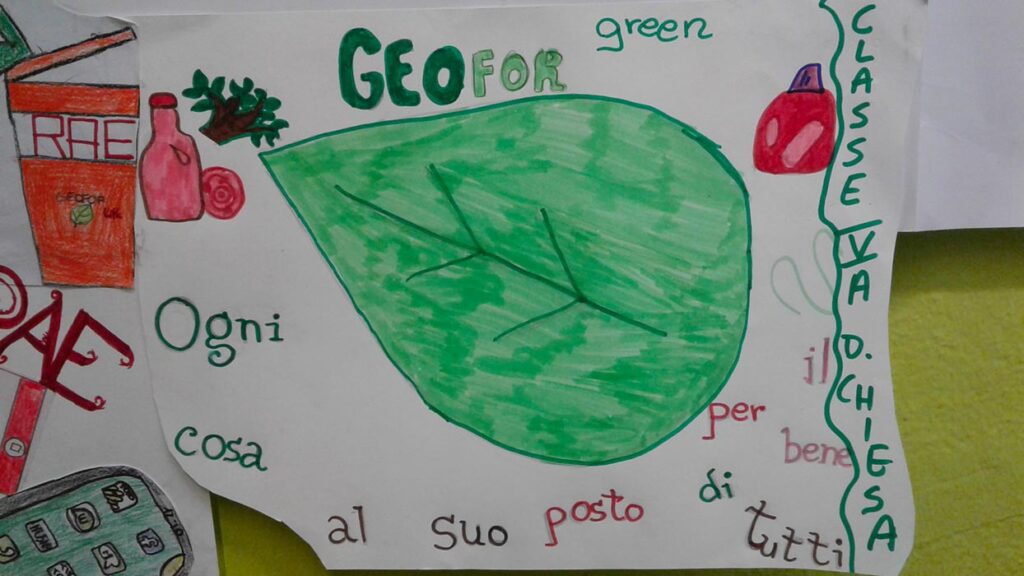 green
GEOFOR
RAE
GEOFOR
Ogni
cosa
al suo posto
per
il
bene
di
tutti
CLASSE VA D.CHIESA